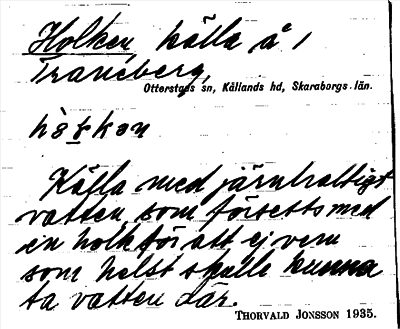 Holken, källa å 1
Traneberg,
Otterstads sn, Kållands hd, Skaraborgs län.
Källa med järnhaltigt
vatten, som försetts med
en holk för att ej vem
som helst skulle kunna
ta vatten där.
THORVALD JONSSON 1935.